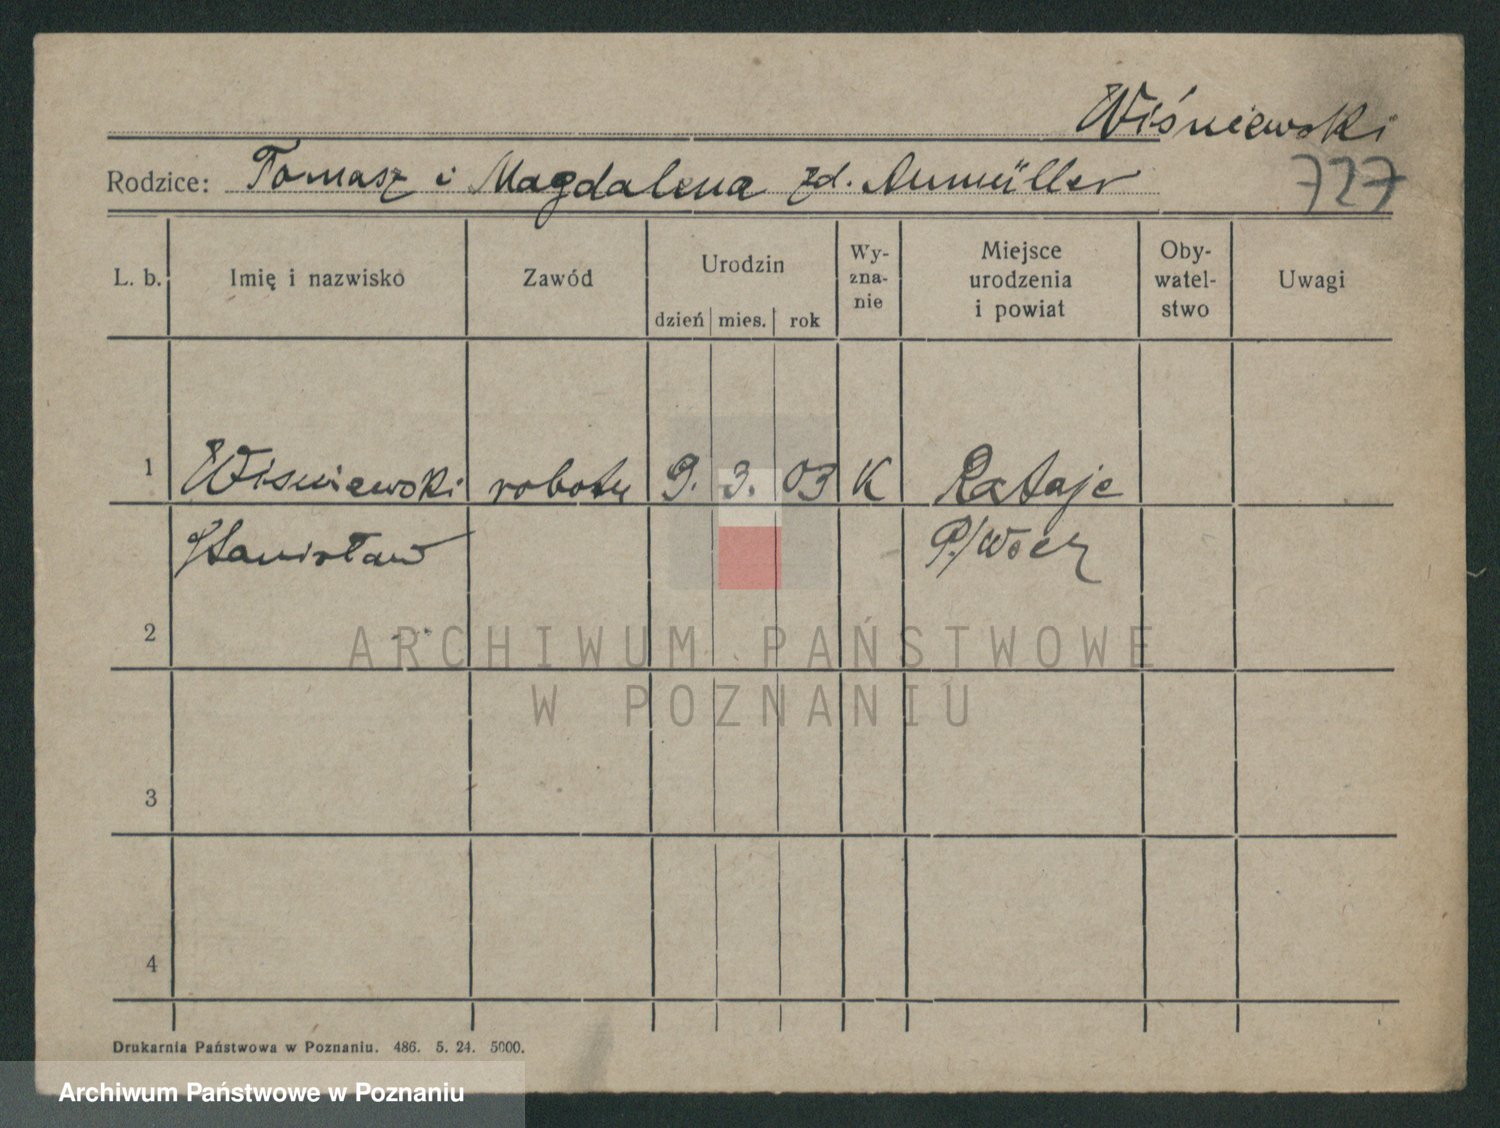 Wiśniewski
Rodzice: Tomasz i Magdalena zd. Aumüller
727
L. b. Imię i nazwisko Zawód Urodzin dzień mies. rok Wy-zna-nie Miejsce urodzenia i powiat Oby-watel-stwo Uwagi
1 Wiśniewski robotn 9. 3. 03 K Rataje
Stanisław P./
2
ARCHIWUM PAŃSTWOWE
W POZNANIU
3
4
Drukarnia Państwowa w Poznaniu. 486. 5. 24. 5000.
Archiwum Państwowe w Poznaniu